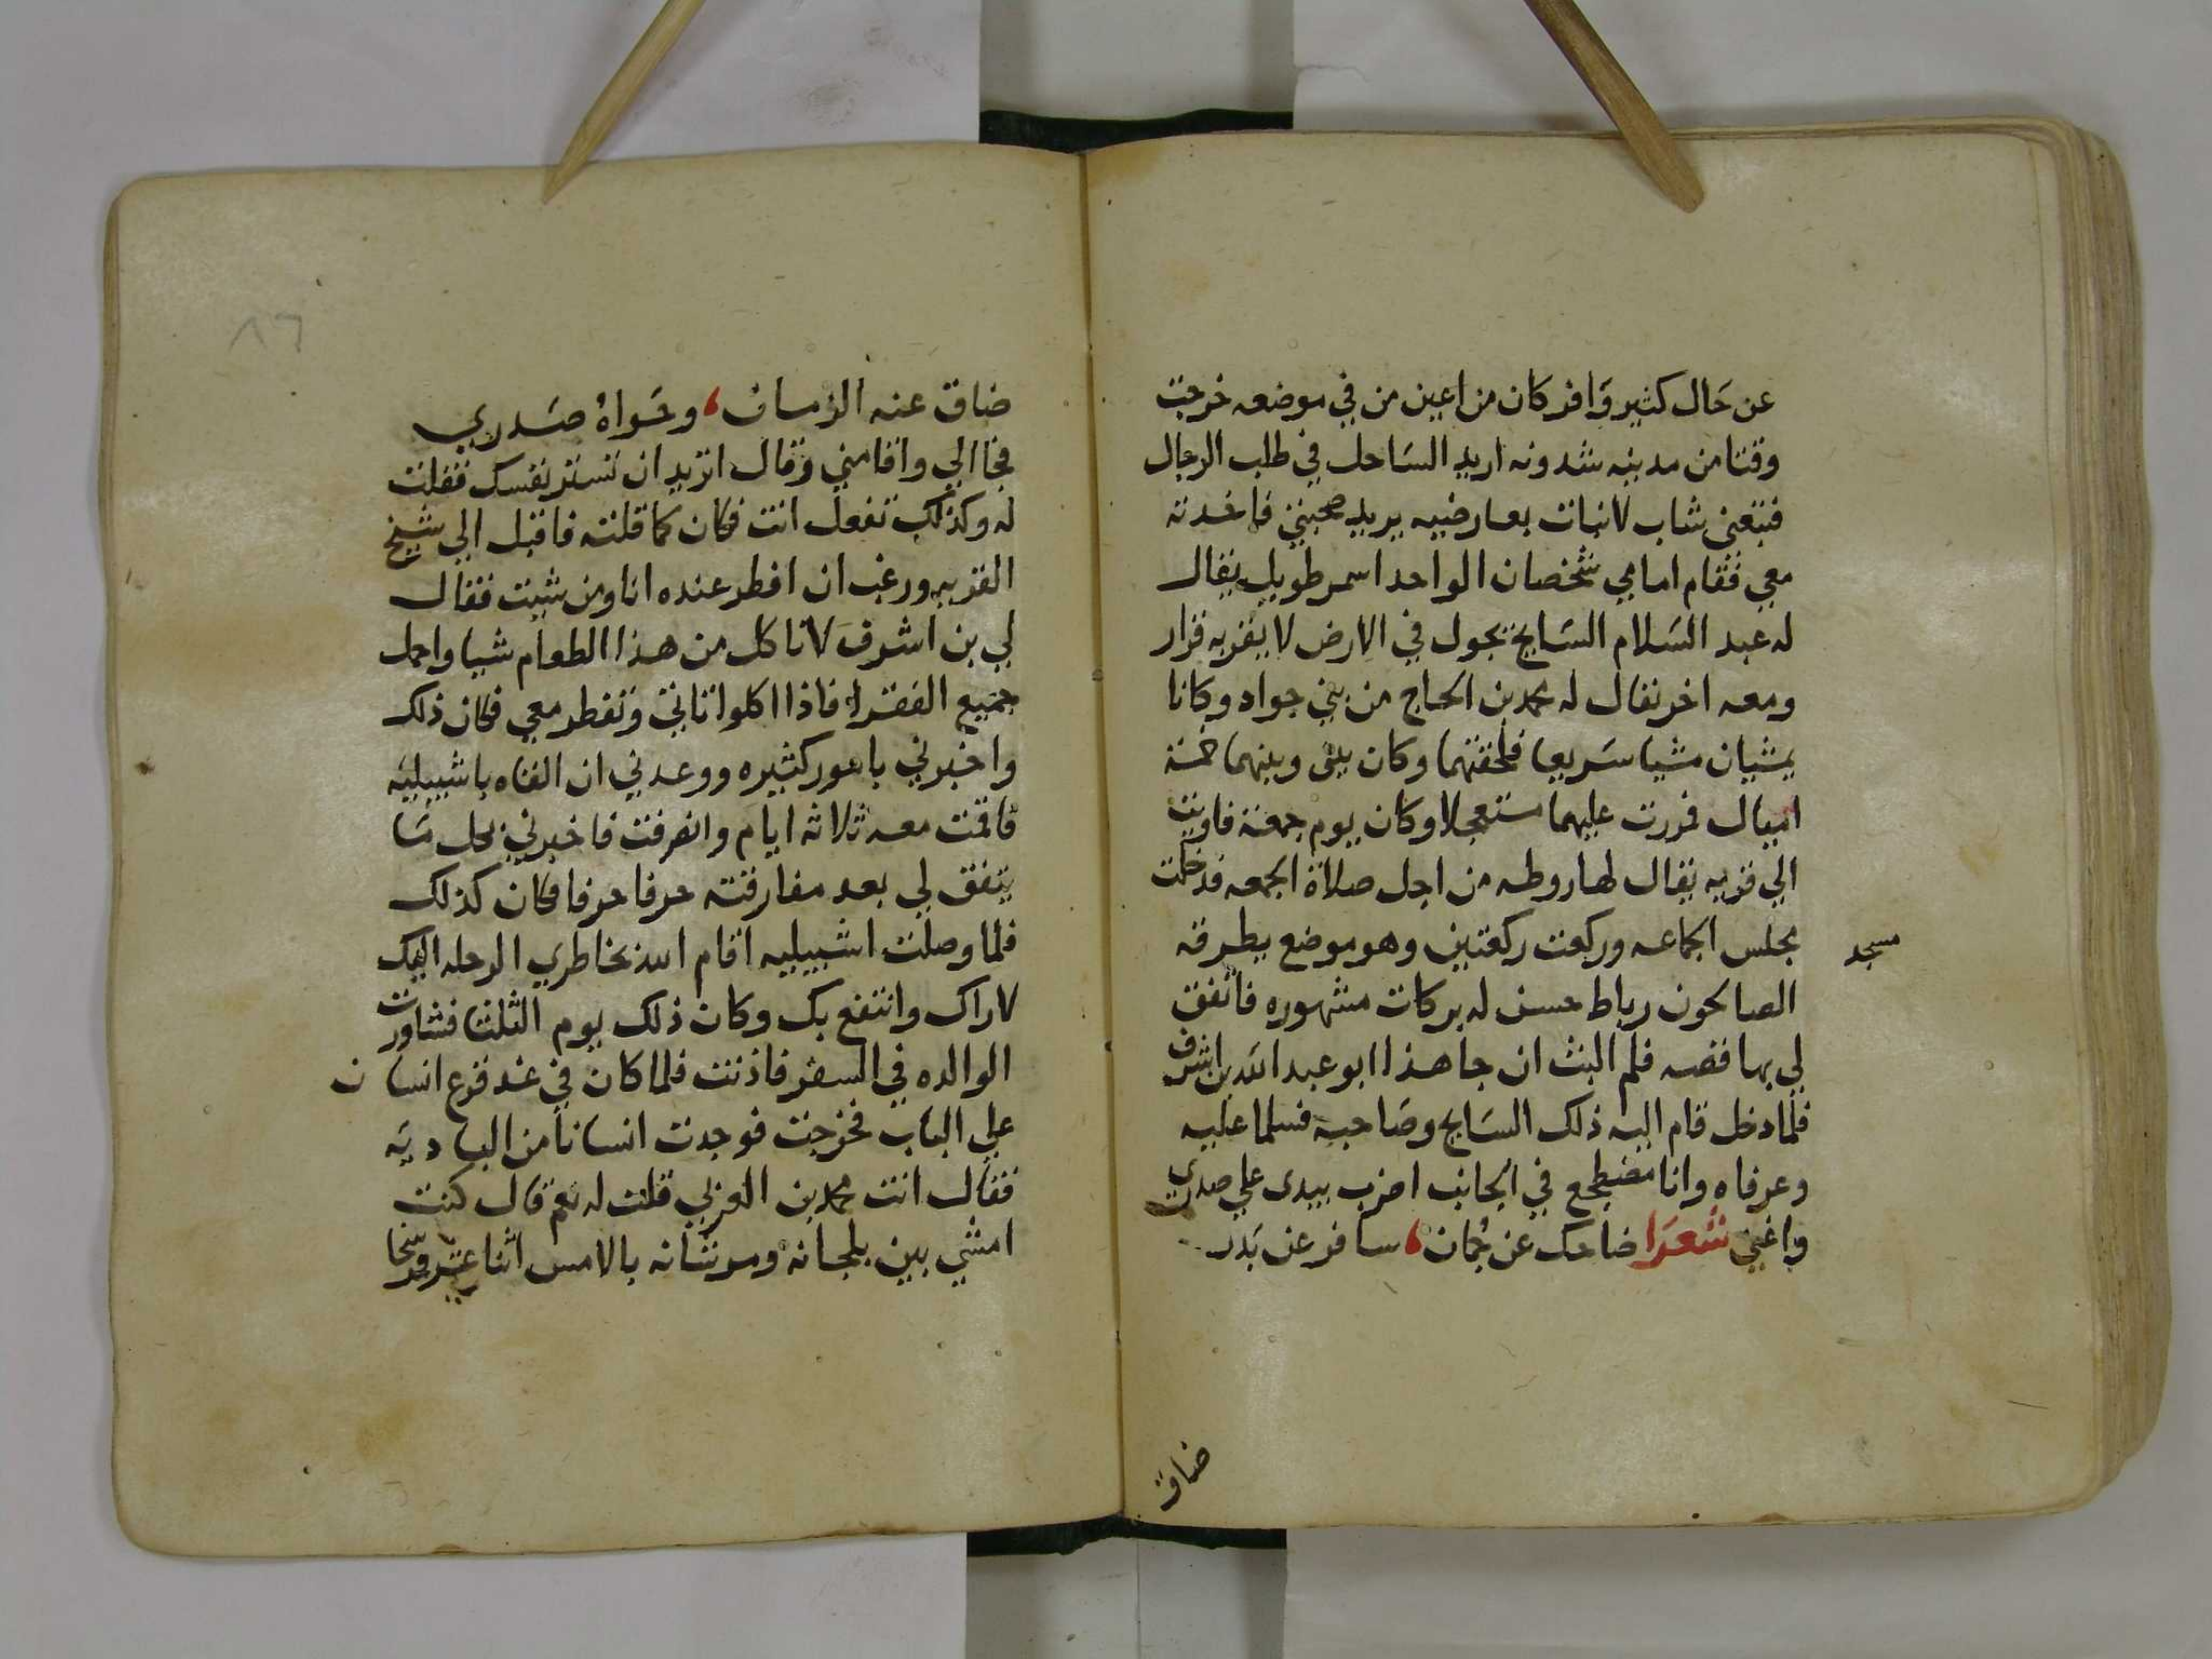 عن حَال كثير وَافر كان من اعين من في موضعه خرجت
وقتا من مدينه شدونه اريد السَاحل في طلب الرجال
فتبعنى شاب لا نبات بعارضيه يريد صحبتي فاخذته
معي فقام امامي شخصان الواحد اسمر طويل يقال
له عبد السَلام السَايح يجول في الارض لا يقر به قرار
ومعه اخر يقال له محمد بن الحاج من بني جواد وكانا
يمشيان مشيا سَريعا فلحقتهما وكان بينى وبينهما خمسة
اميال فمررت عليهما مستعجلا وكان يوم جمعة فاويت
الي قريه يقال لها روطه من اجل صلاة الجمعه فدخلت
مجلس الجماعه وركعت ركعتين وهو موضع يطرقه
مسجد
الصالحون رباط حسن له بركات مشهوره فاتفق
لي بها قصه فلم البث ان جا هذا ابو عبد الله بن اشرف
فلما دخل قام اليه ذلك السَايح وصَاحبه فسلما عليه
وعرفاه وانا مضطجع في الجانب اضرب بيدى علي صدرى
واغني شعَرا ضاحك عن جُمان ، سافر عن بَدر
ضاق
٨٦
ضاق عنه الزمان ، وحَواهُ صَدري
فجا الي واقامني وقال اتريد ان تستر نفسك فقلت
له وكذلك تفعل انت فكان كما قلته فاقبل الي شيخ
القريه ورغب ان افطر عنده انا ومن شيت فقال
لي بن اشرفَ لا تاكل من هذا الطعام شيا واحمل
جميع الفقرا فاذا اكلوا تاتي وتفطر معي فكان ذلك
واخبرني بامور كثيره ووعدني ان القاه باشبيليَه
فاقمت معه ثلاثه ايام وانصرفت فاخبرني بكل مَا
يتفق لي بعد مفارقته حرفا حرفا فكان كذلك
فلما وصلت اشبيليه اقام الله بخاطري الرحله اليك
لاراك وانتفع بك وكان ذلك يوم الثلثا فشاورت
الوالده في السفر فاذنت فلما كان في غد قرع انسان
علي الباب فخرجت فوجدت انسانا من الباديَه
فقال انت محمد بن العربي قلت له نعم قال كنت
امشي بين بلجانه ومرشانه بالامس اثنا عشر فرسخا